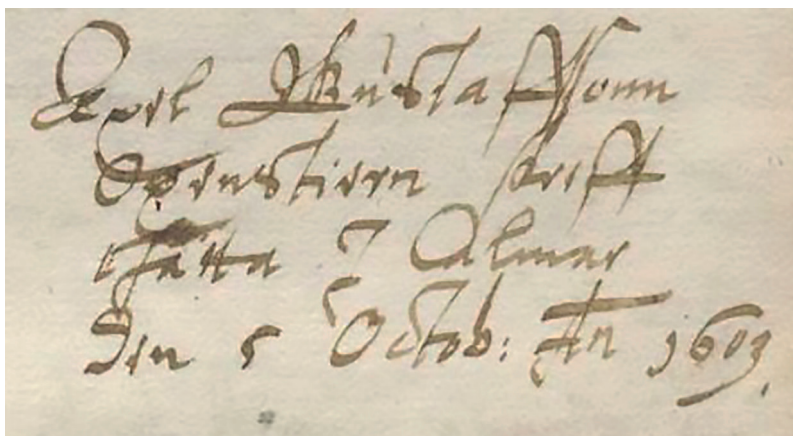 Axel Gustaffsonn
Oxenstiern screff
thätta I Calmar
Den 5 Octob: An 1603